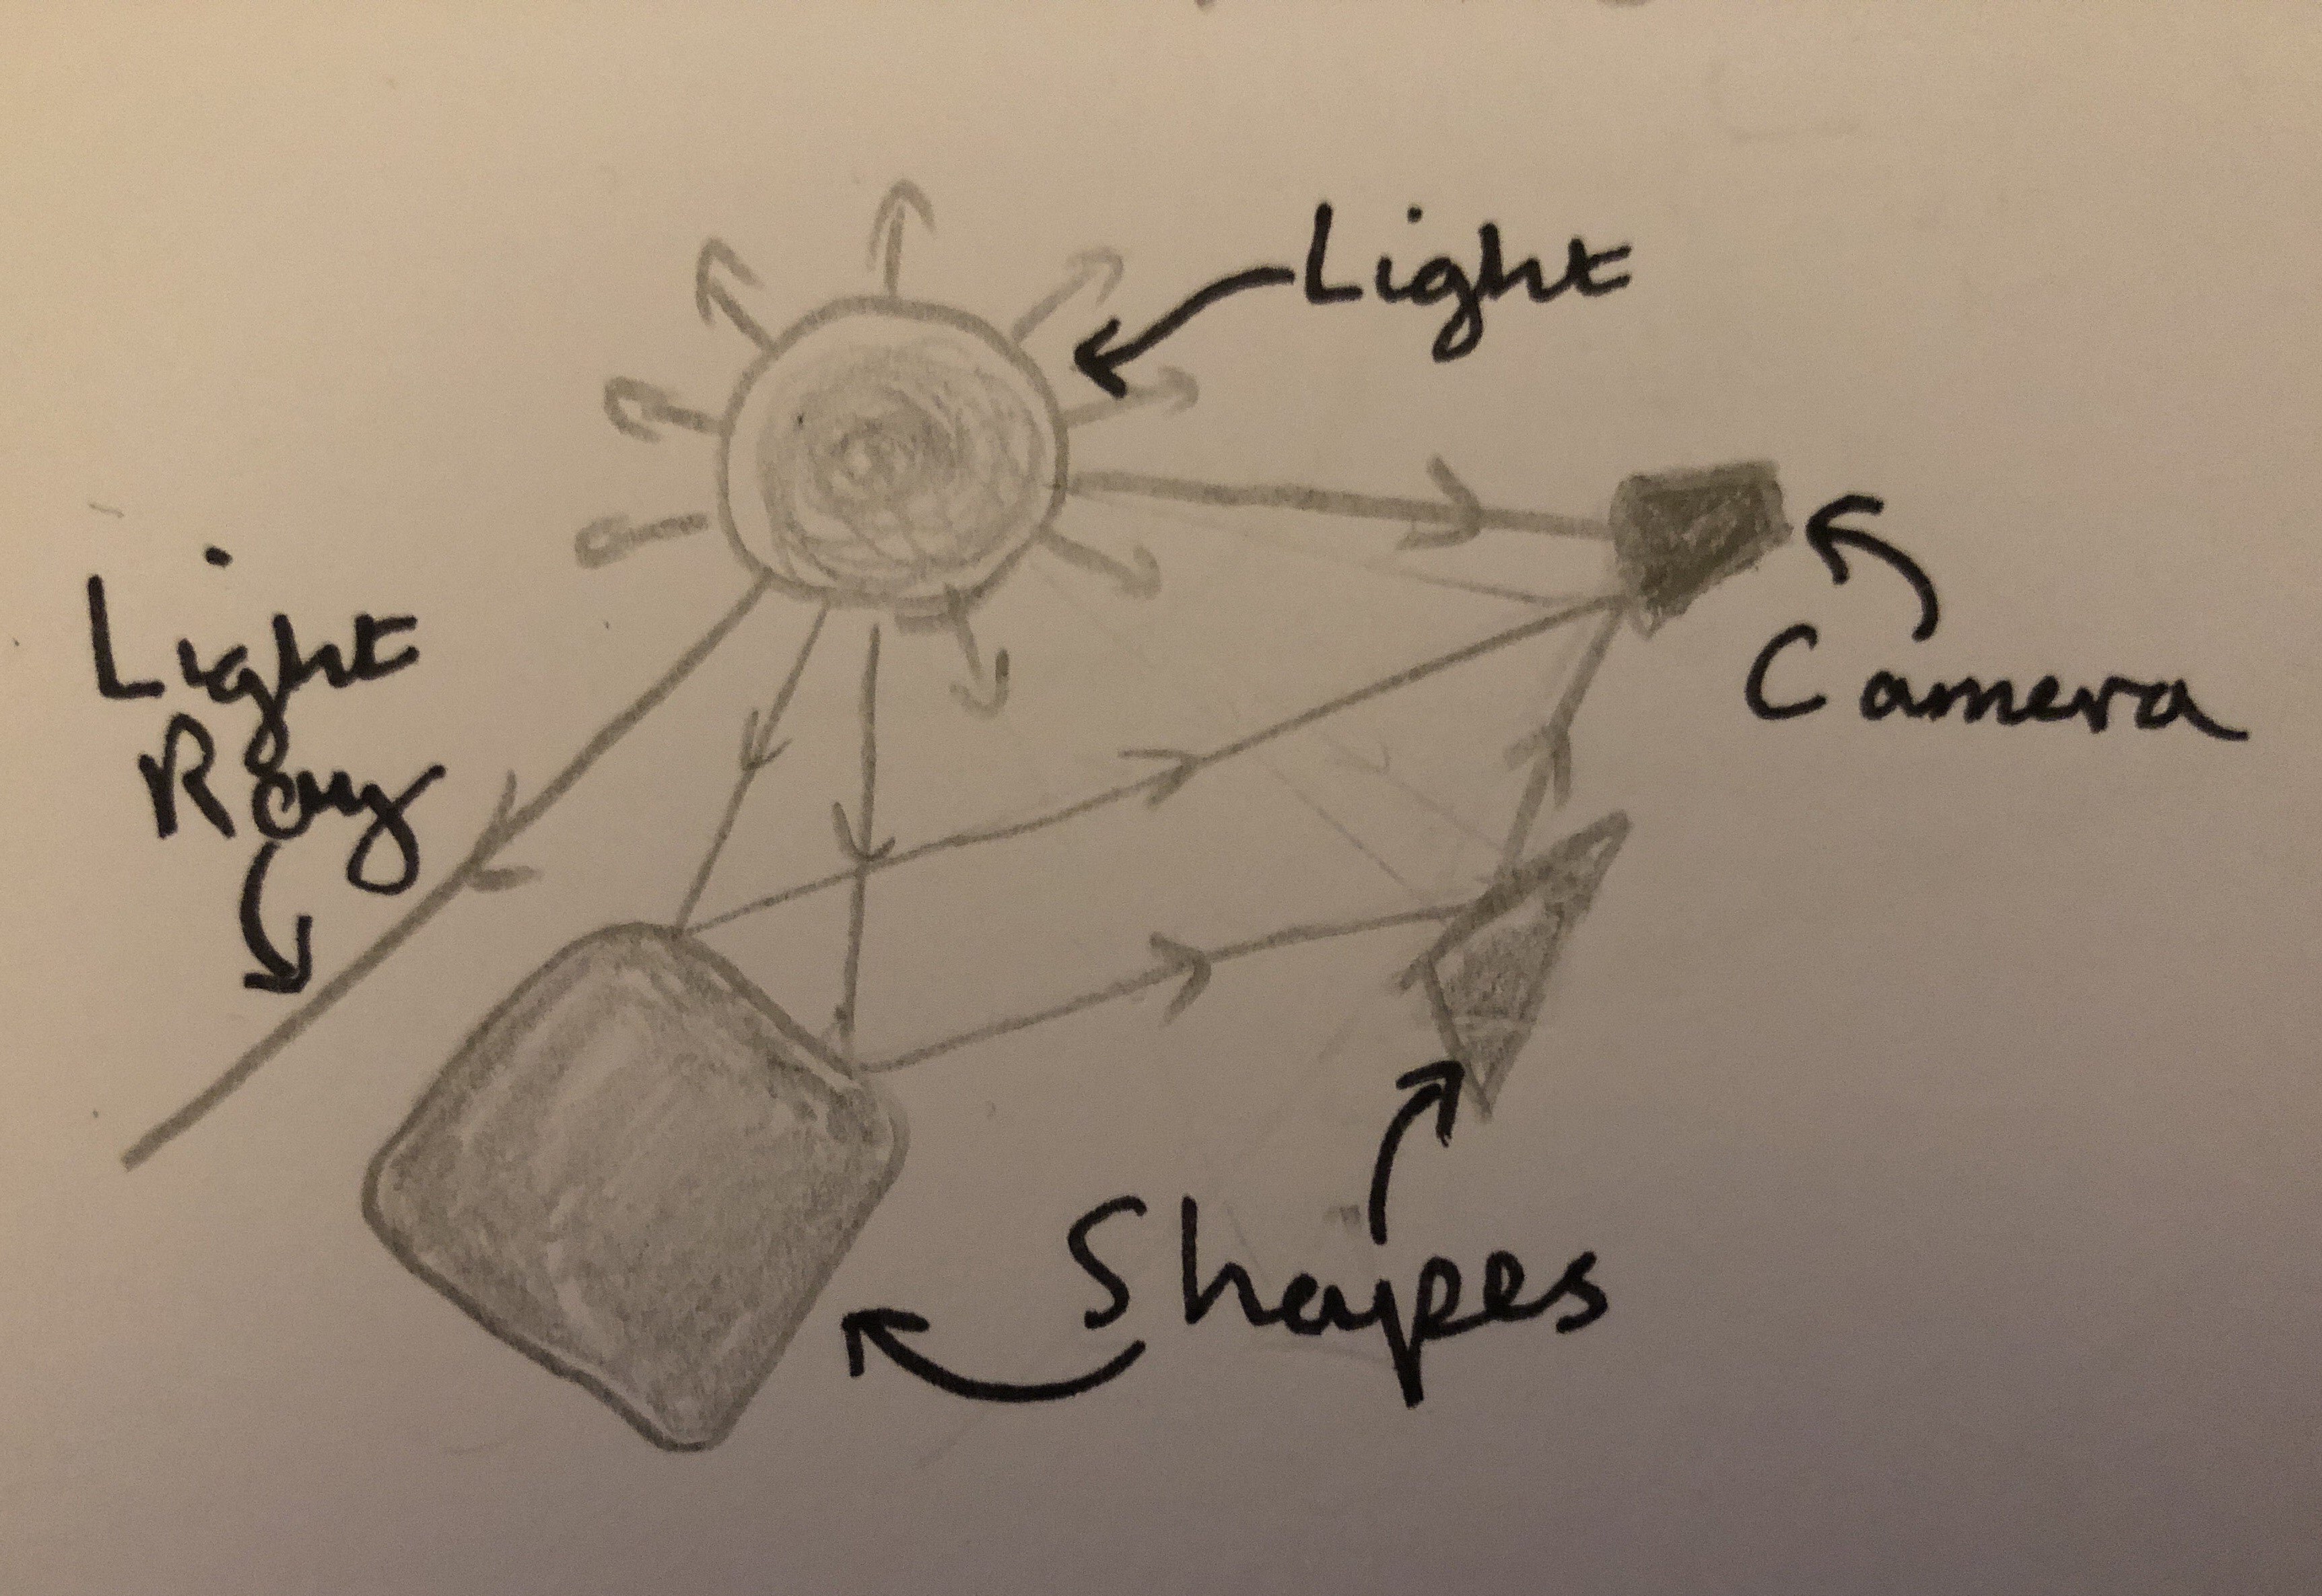 Light
Light
Ray
Camera
Shapes